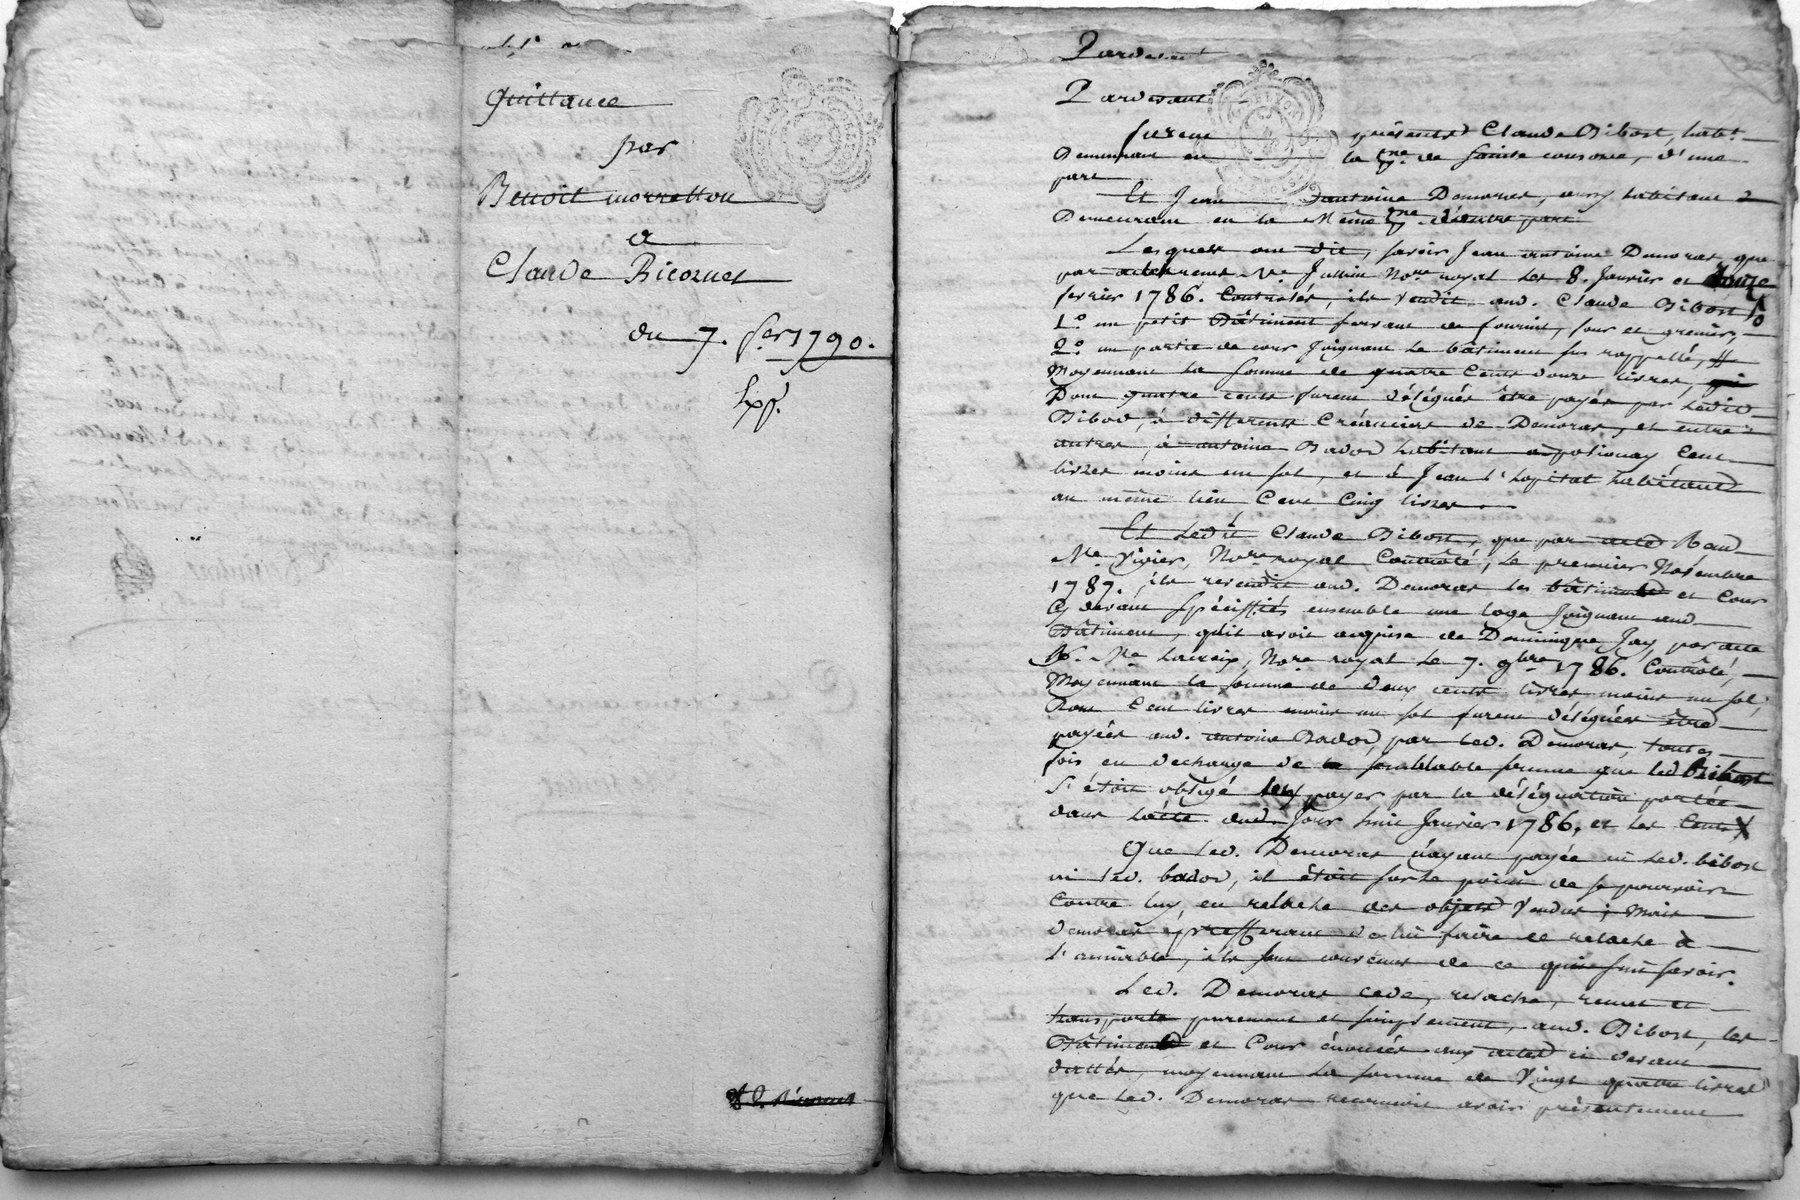 Quittance
par
Benoit morretton
a
Claude Ricornet
du 7. 1790.
Exp.
Pardevant
Pardevant
furent présents Claude Bibost, habt.
Demeurant en la de Sainte consorce, d'une
part
Et Jean antoine Demoras, aussy habitant &
Demeurant en la Même d'autre part
Lesquels ont dit, savoir Jean antoine Demoras, que
par actes reçus Me Jullin Nore royal les 8. Janvier et douze
fevrier 1786. Contrôlés, il a vendit aud. Claude Bibost
1.o un petit Bâtiment servant de fournil, four et grenier,
2.o un partie de cour Joignant le bâtiment sus rappellé,
Moyennant la somme de quatre Cents douze livres,
Dont quatre cents furent délégués être payés par Ledit
Bibost, à différents Créanciers de Demoras, et entre
autres, à antoine Bador habitant à polionay Cent
livres moins un sol, et à Jean L'hopital habitant
au même lieu Cent Cinq livres
Et Ledit Claude Bibost, que par acte
Me Vivier, Nore royal Contrôlé, le premier Novembre
1787. il a revendit aud. Demoras les bâtiment et Cour
cy devant spéciffiés ensemble une loge Joignant aud.
Bâtiment, qu'il avoit acquise de Dominique Jay, par acte
Me Lacroix, Nore royal le 7. 9bre 1786. Contrôlé,
Moyennant la somme de deux cents livres moins un sol,
Dont Cent livres moins un sol furent déléguées être
payées aud. antoine Bador, par led. Demoras, toutes
fois en décharge de semblable somme que led Bibost
s'étoit obligé payer par la délégation portée
dans L'acte dud. Jour huit Janvier 1786. et les Cents X
Que led. Demoras n'ayant payée ni led. bibost
ni led. bador, il étoit sur le point de se pourvoir
Contre luy en relache des objets Vendus; Mais
demoras prefferant de lui faire ce relache à
L'amiable, ils sont convenus de ce qui suit savoir.
Led. Demoras cede, relache, remet et
transporte purement et simplement, aud. Bibost, les
Bâtiment et Cour énoncés aux actes ci devant
dattés, moyennant la somme de Vingt quatre livres
que led. Demoras reconnoit avoir présentement